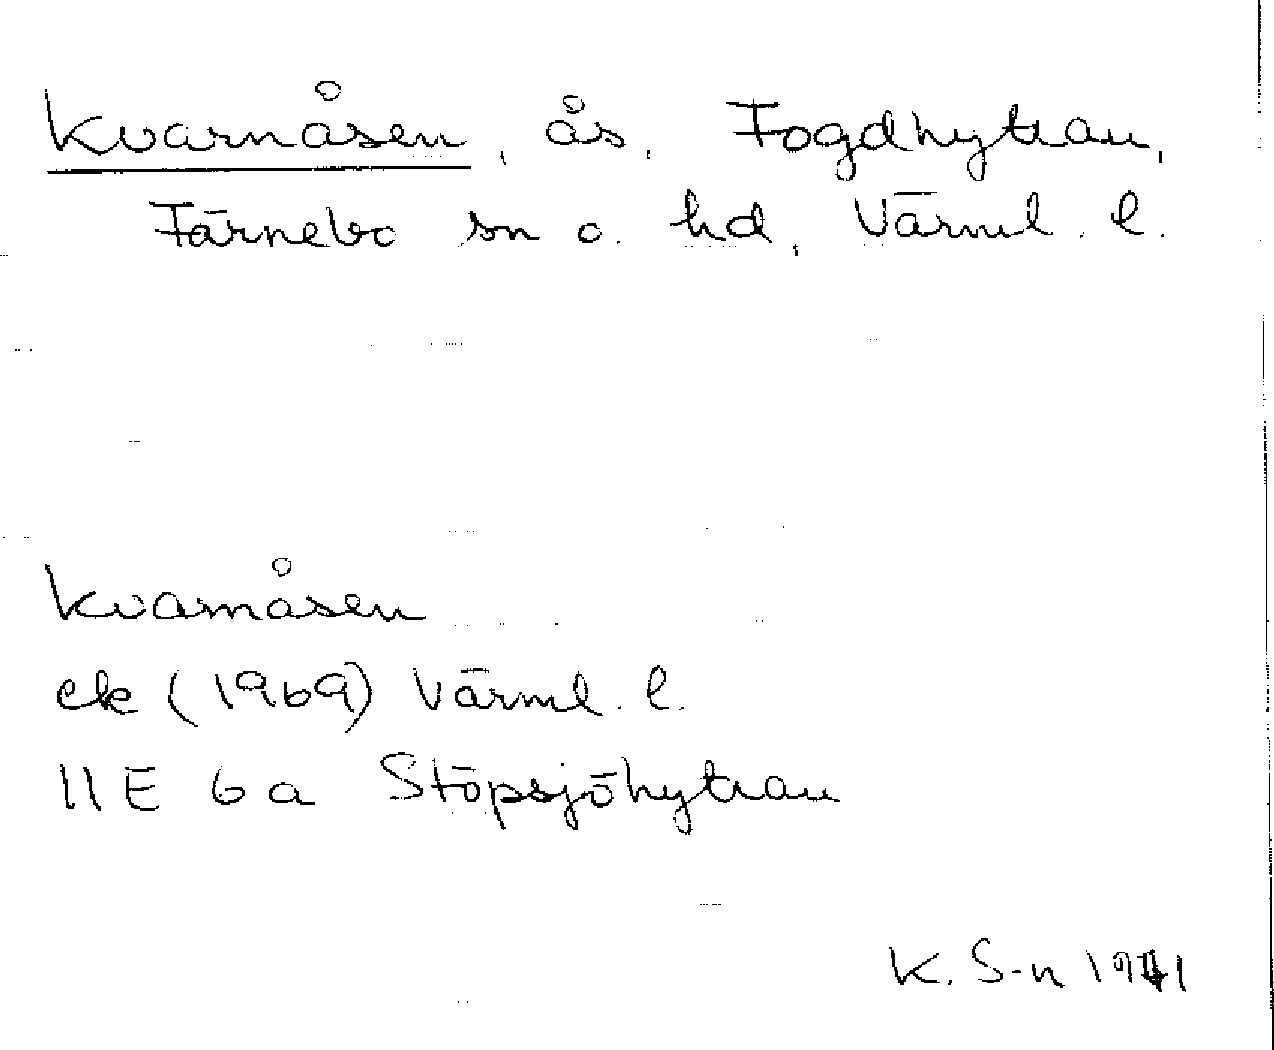 Kvarnåsen, ås, Fogdhyttan,
Färnebo sn o. hd, Värml. l.
Kvarnåsen
ek (1969) Värml. l.
11E 6a Stöpsjöhyttan
K. S-n 1971